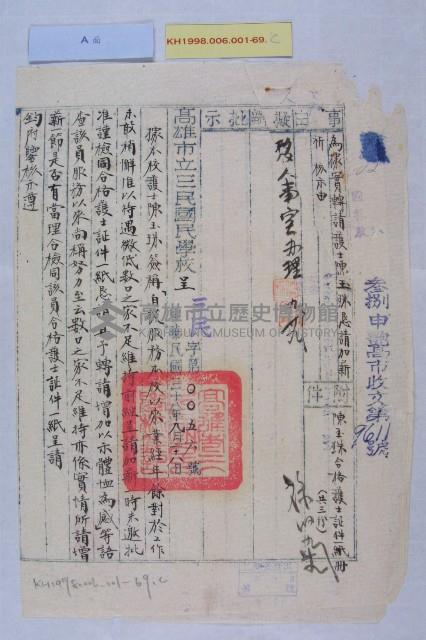 A面
KH1998.006.001-69.C
事由 為據實轉請護士陳玉珠懇請加薪
祈核示由
附件 陳玉珠合格護士証件一紙
擬辦 批示
高雄市立三民國民學校 呈
三民字第〇〇五六號
民國三十八年九月十八日
據本校護士陳玉珠簽稱自職服務本校以來業經年餘對於工作
未敢稍懈准以待遇微低數口之家不足維持前經呈請加薪時未邀批
准謹檢同合格護士証件一紙懇祈 准予轉請增加以示體恤為感等語
查該員服務以來尚稱努力至云數口之家不足維持亦係實情所請增
薪一節是否有當理合檢同該員合格護士証件一紙呈請
鈞府鑒核示遵
高雄市立歷史博物館
KAOHSIUNG MUSEUM OF HISTORY
高市收文第
9611
號
KH1998.006.001-69.C